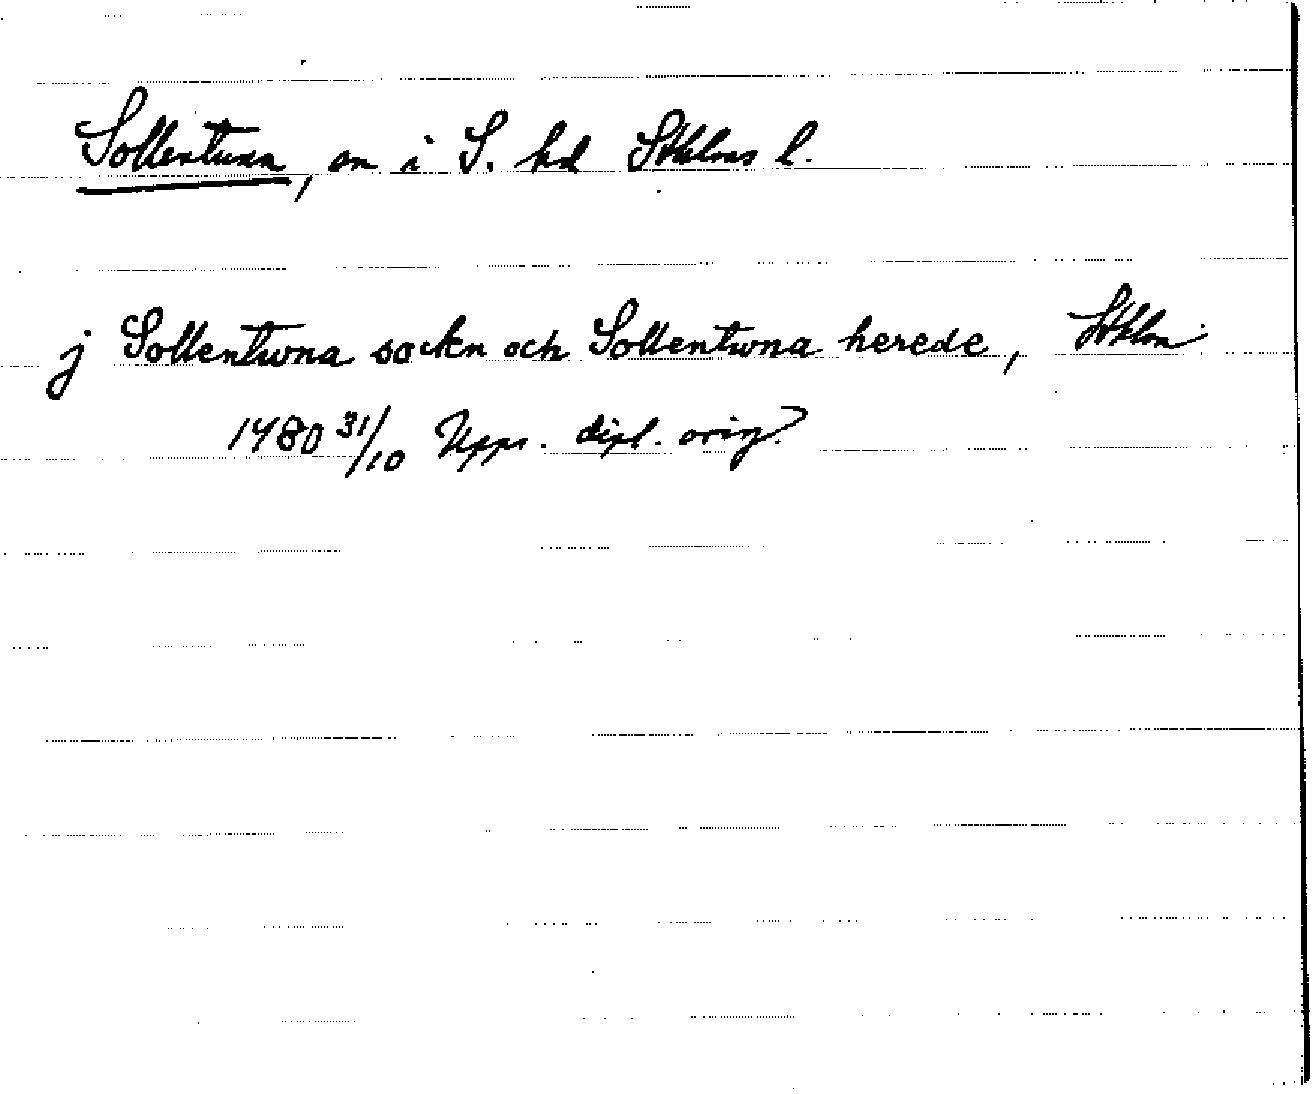 Sollentuna, sn i S. hd Sthlms l.
j Sollentwna sockn och Sollentwna herede, Sthlm
1480 31/10 Upps. dipl. orig.